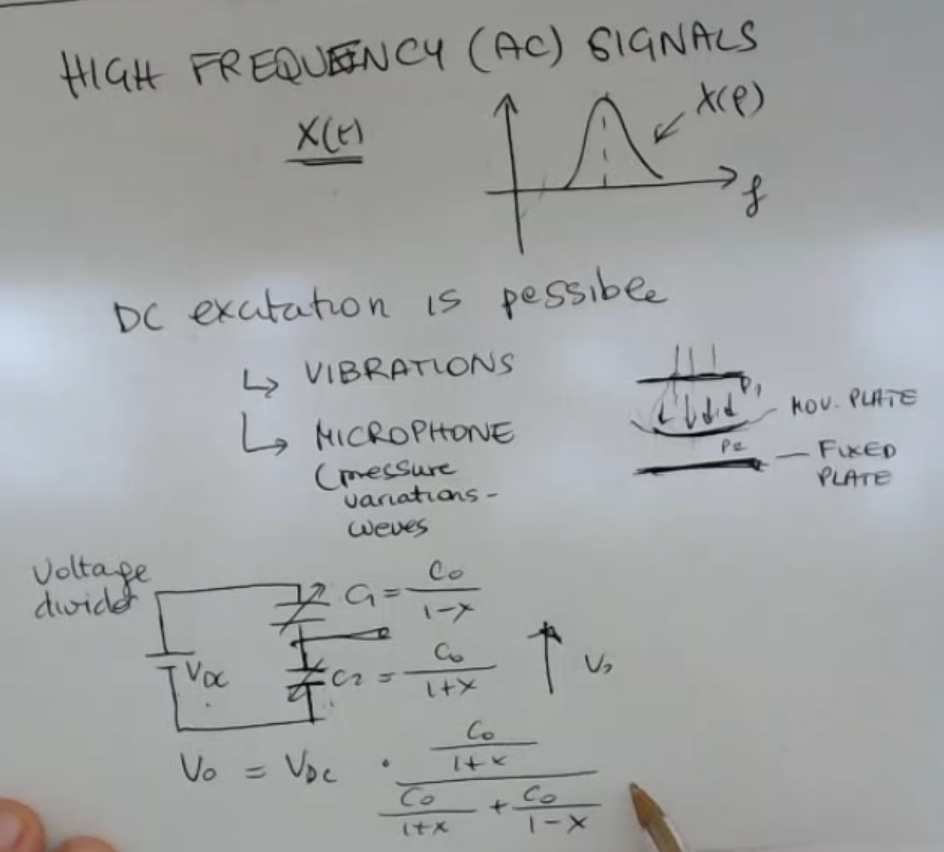 HIGH FREQUENCY (AC) SIGNALS
X(t)
X(f)
f
DC excitation is possible
↳ VIBRATIONS
↳ MICROPHONE
(pressure
variations-
weves
P1
MOV. PLATE
P2
FIXED
PLATE
Voltage
divider
VDC
C1 = C0 / 1-x
C2 = C0 / 1+x
V0
V0 = VDC · (C0 / 1+x) / (C0 / 1+x + C0 / 1-x)